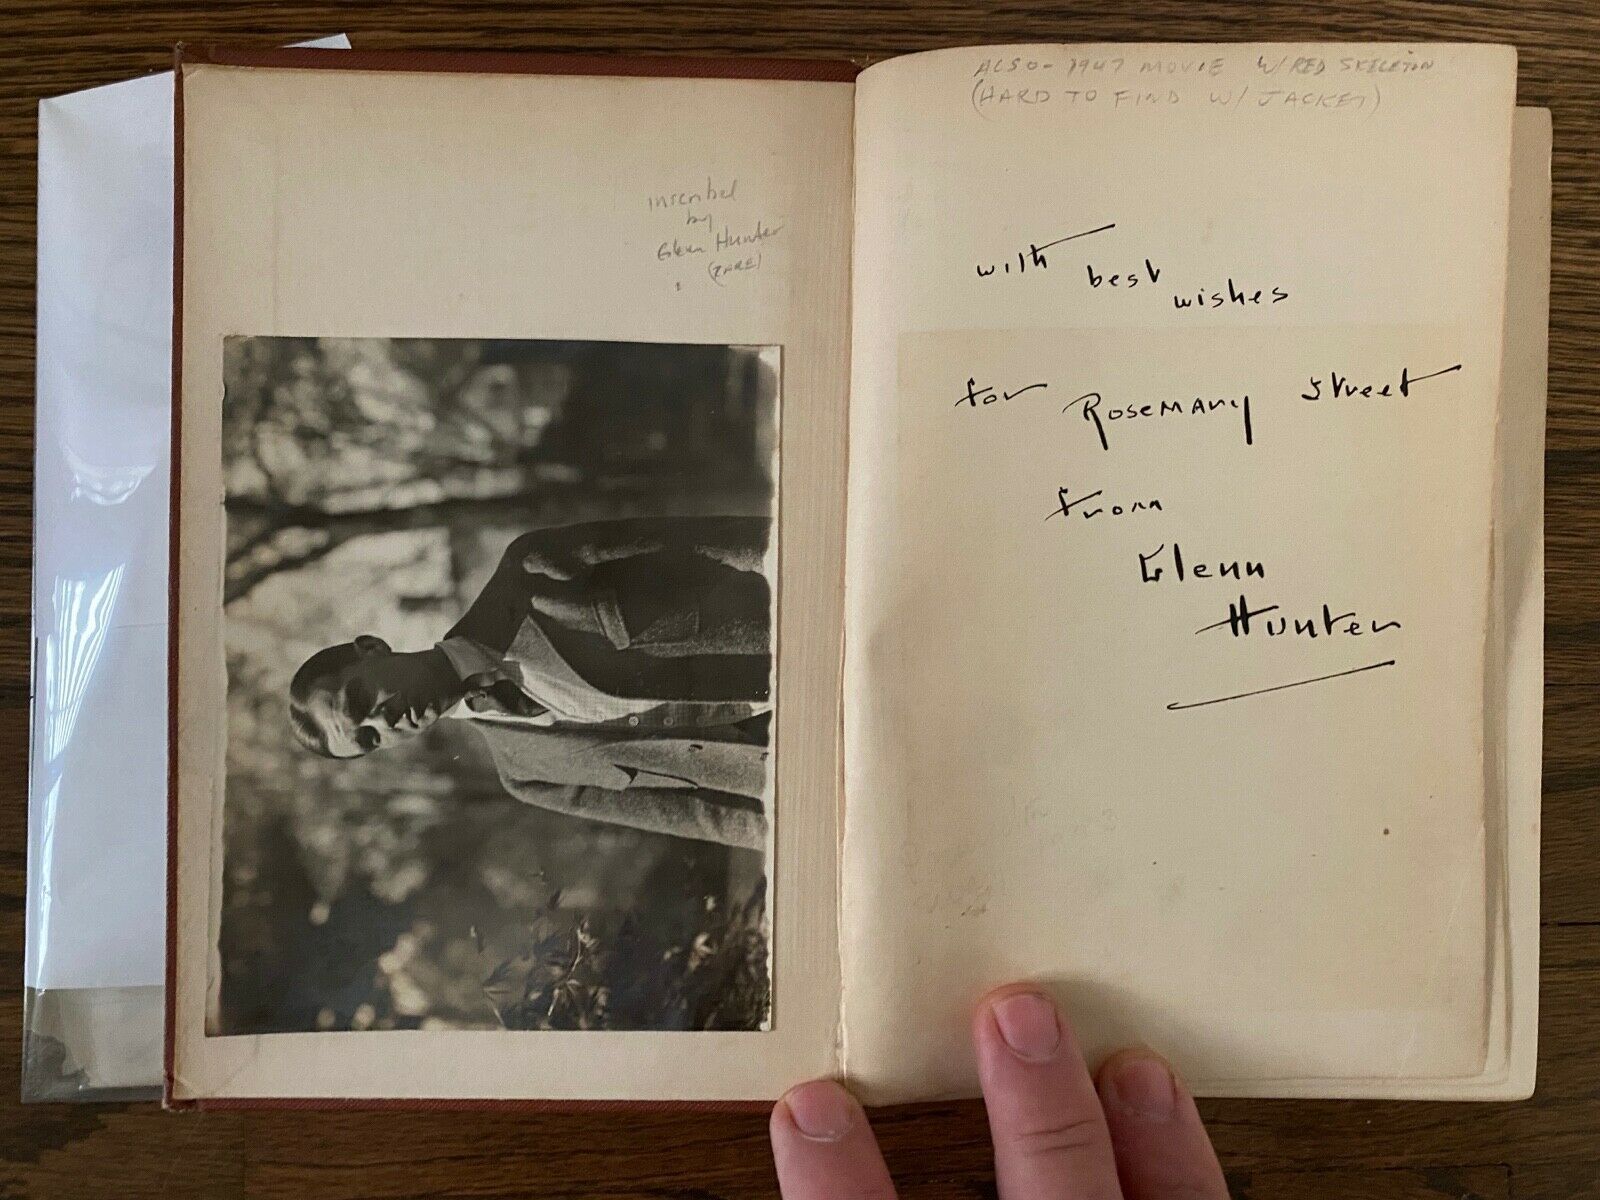 inscribed
by
Glenn Hunter
(RARE)
ALSO - 1947 MOVIE W/ RED SKELETON
(HARD TO FIND W/ JACKET)
with best wishes
for Rosemary Street
from
Glenn
Hunter